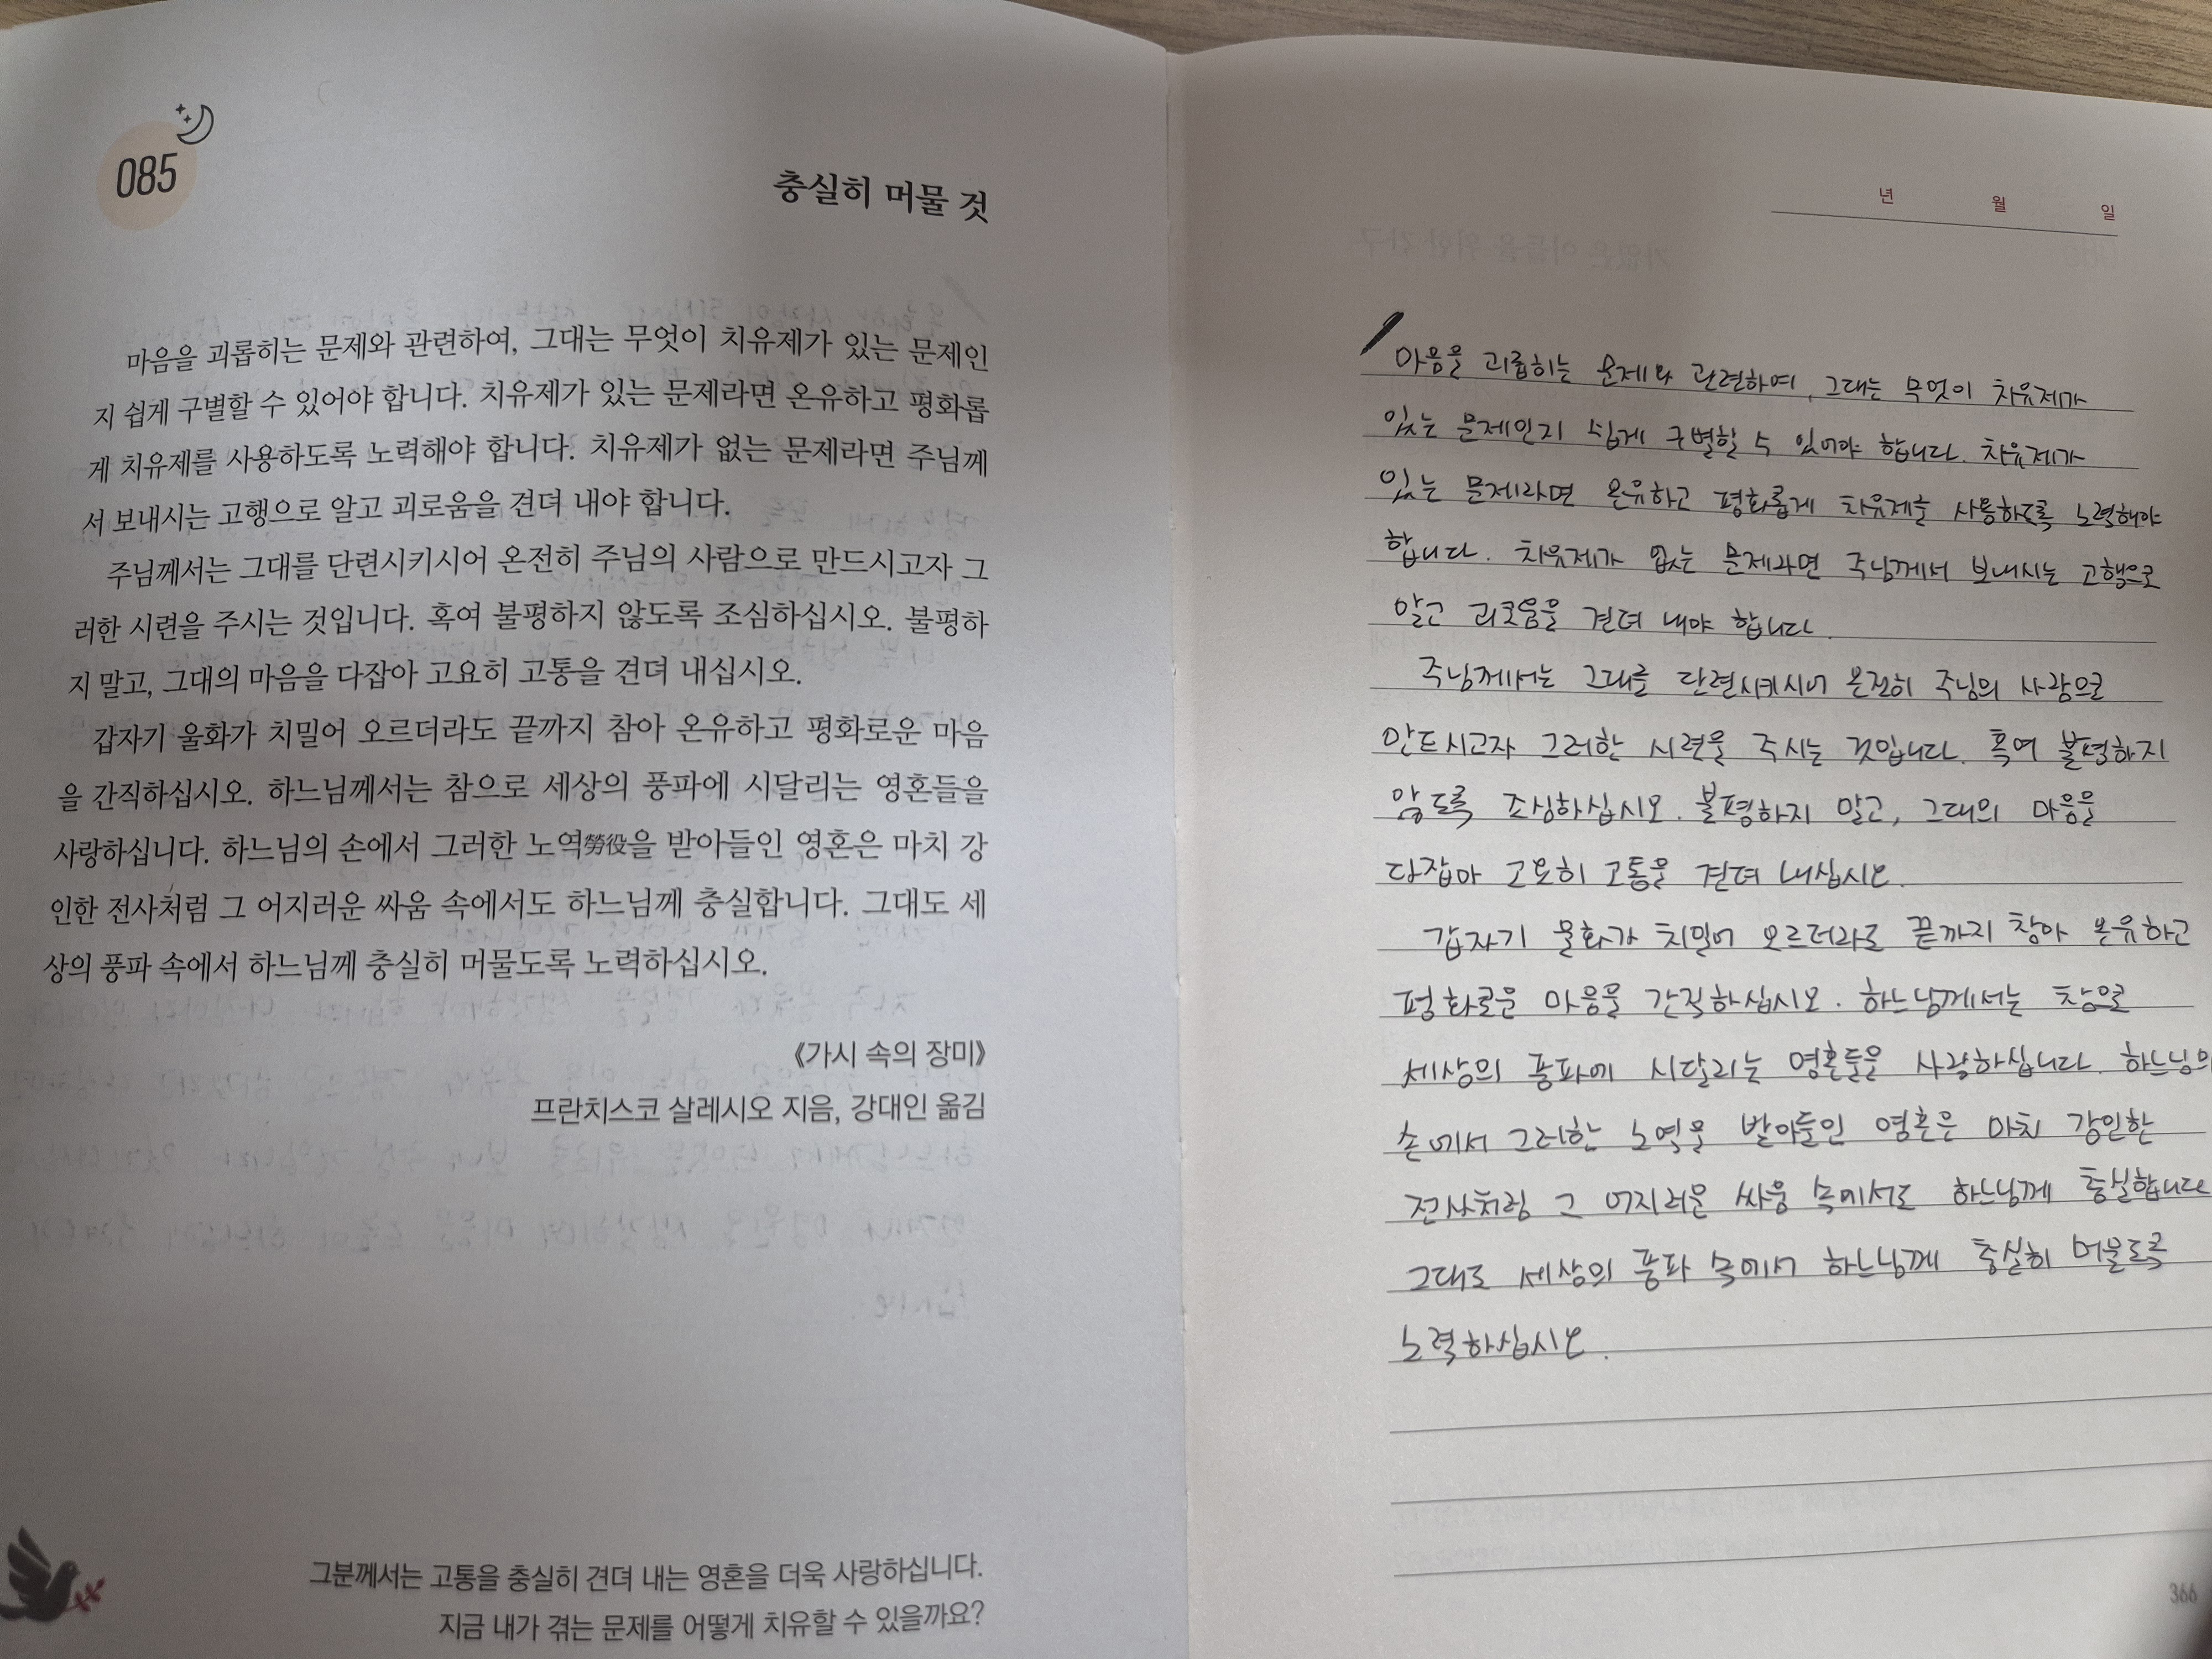 085
충실히 머물 것
마음을 괴롭히는 문제와 관련하여, 그대는 무엇이 치유제가 있는 문제인
지 쉽게 구별할 수 있어야 합니다. 치유제가 있는 문제라면 온유하고 평화롭
게 치유제를 사용하도록 노력해야 합니다. 치유제가 없는 문제라면 주님께
서 보내시는 고행으로 알고 괴로움을 견뎌 내야 합니다.
주님께서는 그대를 단련시키시어 온전히 주님의 사람으로 만드시고자 그
러한 시련을 주시는 것입니다. 혹여 불평하지 않도록 조심하십시오. 불평하
지 말고, 그대의 마음을 다잡아 고요히 고통을 견뎌 내십시오.
갑자기 울화가 치밀어 오르더라도 끝까지 참아 온유하고 평화로운 마음
을 간직하십시오. 하느님께서는 참으로 세상의 풍파에 시달리는 영혼들을
사랑하십니다. 하느님의 손에서 그러한 노역勞役을 받아들인 영혼은 마치 강
인한 전사처럼 그 어지러운 싸움 속에서도 하느님께 충실합니다. 그대도 세
상의 풍파 속에서 하느님께 충실히 머물도록 노력하십시오.
《가시 속의 장미》
프란치스코 살레시오 지음, 강대인 옮김
그분께서는 고통을 충실히 견뎌 내는 영혼을 더욱 사랑하십니다.
지금 내가 겪는 문제를 어떻게 치유할 수 있을까요?
년 월 일
마음을 괴롭히는 문제와 관련하여, 그대는 무엇이 치유제가
있는 문제인지 쉽게 구별할 수 있어야 합니다. 치유제가
있는 문제라면 온유하고 평화롭게 치유제를 사용하도록 노력해야
합니다. 치유제가 없는 문제라면 주님께서 보내시는 고행으로
알고 괴로움을 견뎌 내야 합니다.
주님께서는 그대를 단련시키시어 온전히 주님의 사람으로
만드시고자 그러한 시련을 주시는 것입니다. 혹여 불평하지
않도록 조심하십시오. 불평하지 말고, 그대의 마음을
다잡아 고요히 고통을 견뎌 내십시오.
갑자기 울화가 치밀어 오르더라도 끝까지 참아 온유하고
평화로운 마음을 간직하십시오. 하느님께서는 참으로
세상의 풍파에 시달리는 영혼들을 사랑하십니다. 하느님의
손에서 그러한 노역을 받아들인 영혼은 마치 강인한
전사처럼 그 어지러운 싸움 속에서도 하느님께 충실합니다
그대도 세상의 풍파 속에서 하느님께 충실히 머물도록
노력하십시오.
366